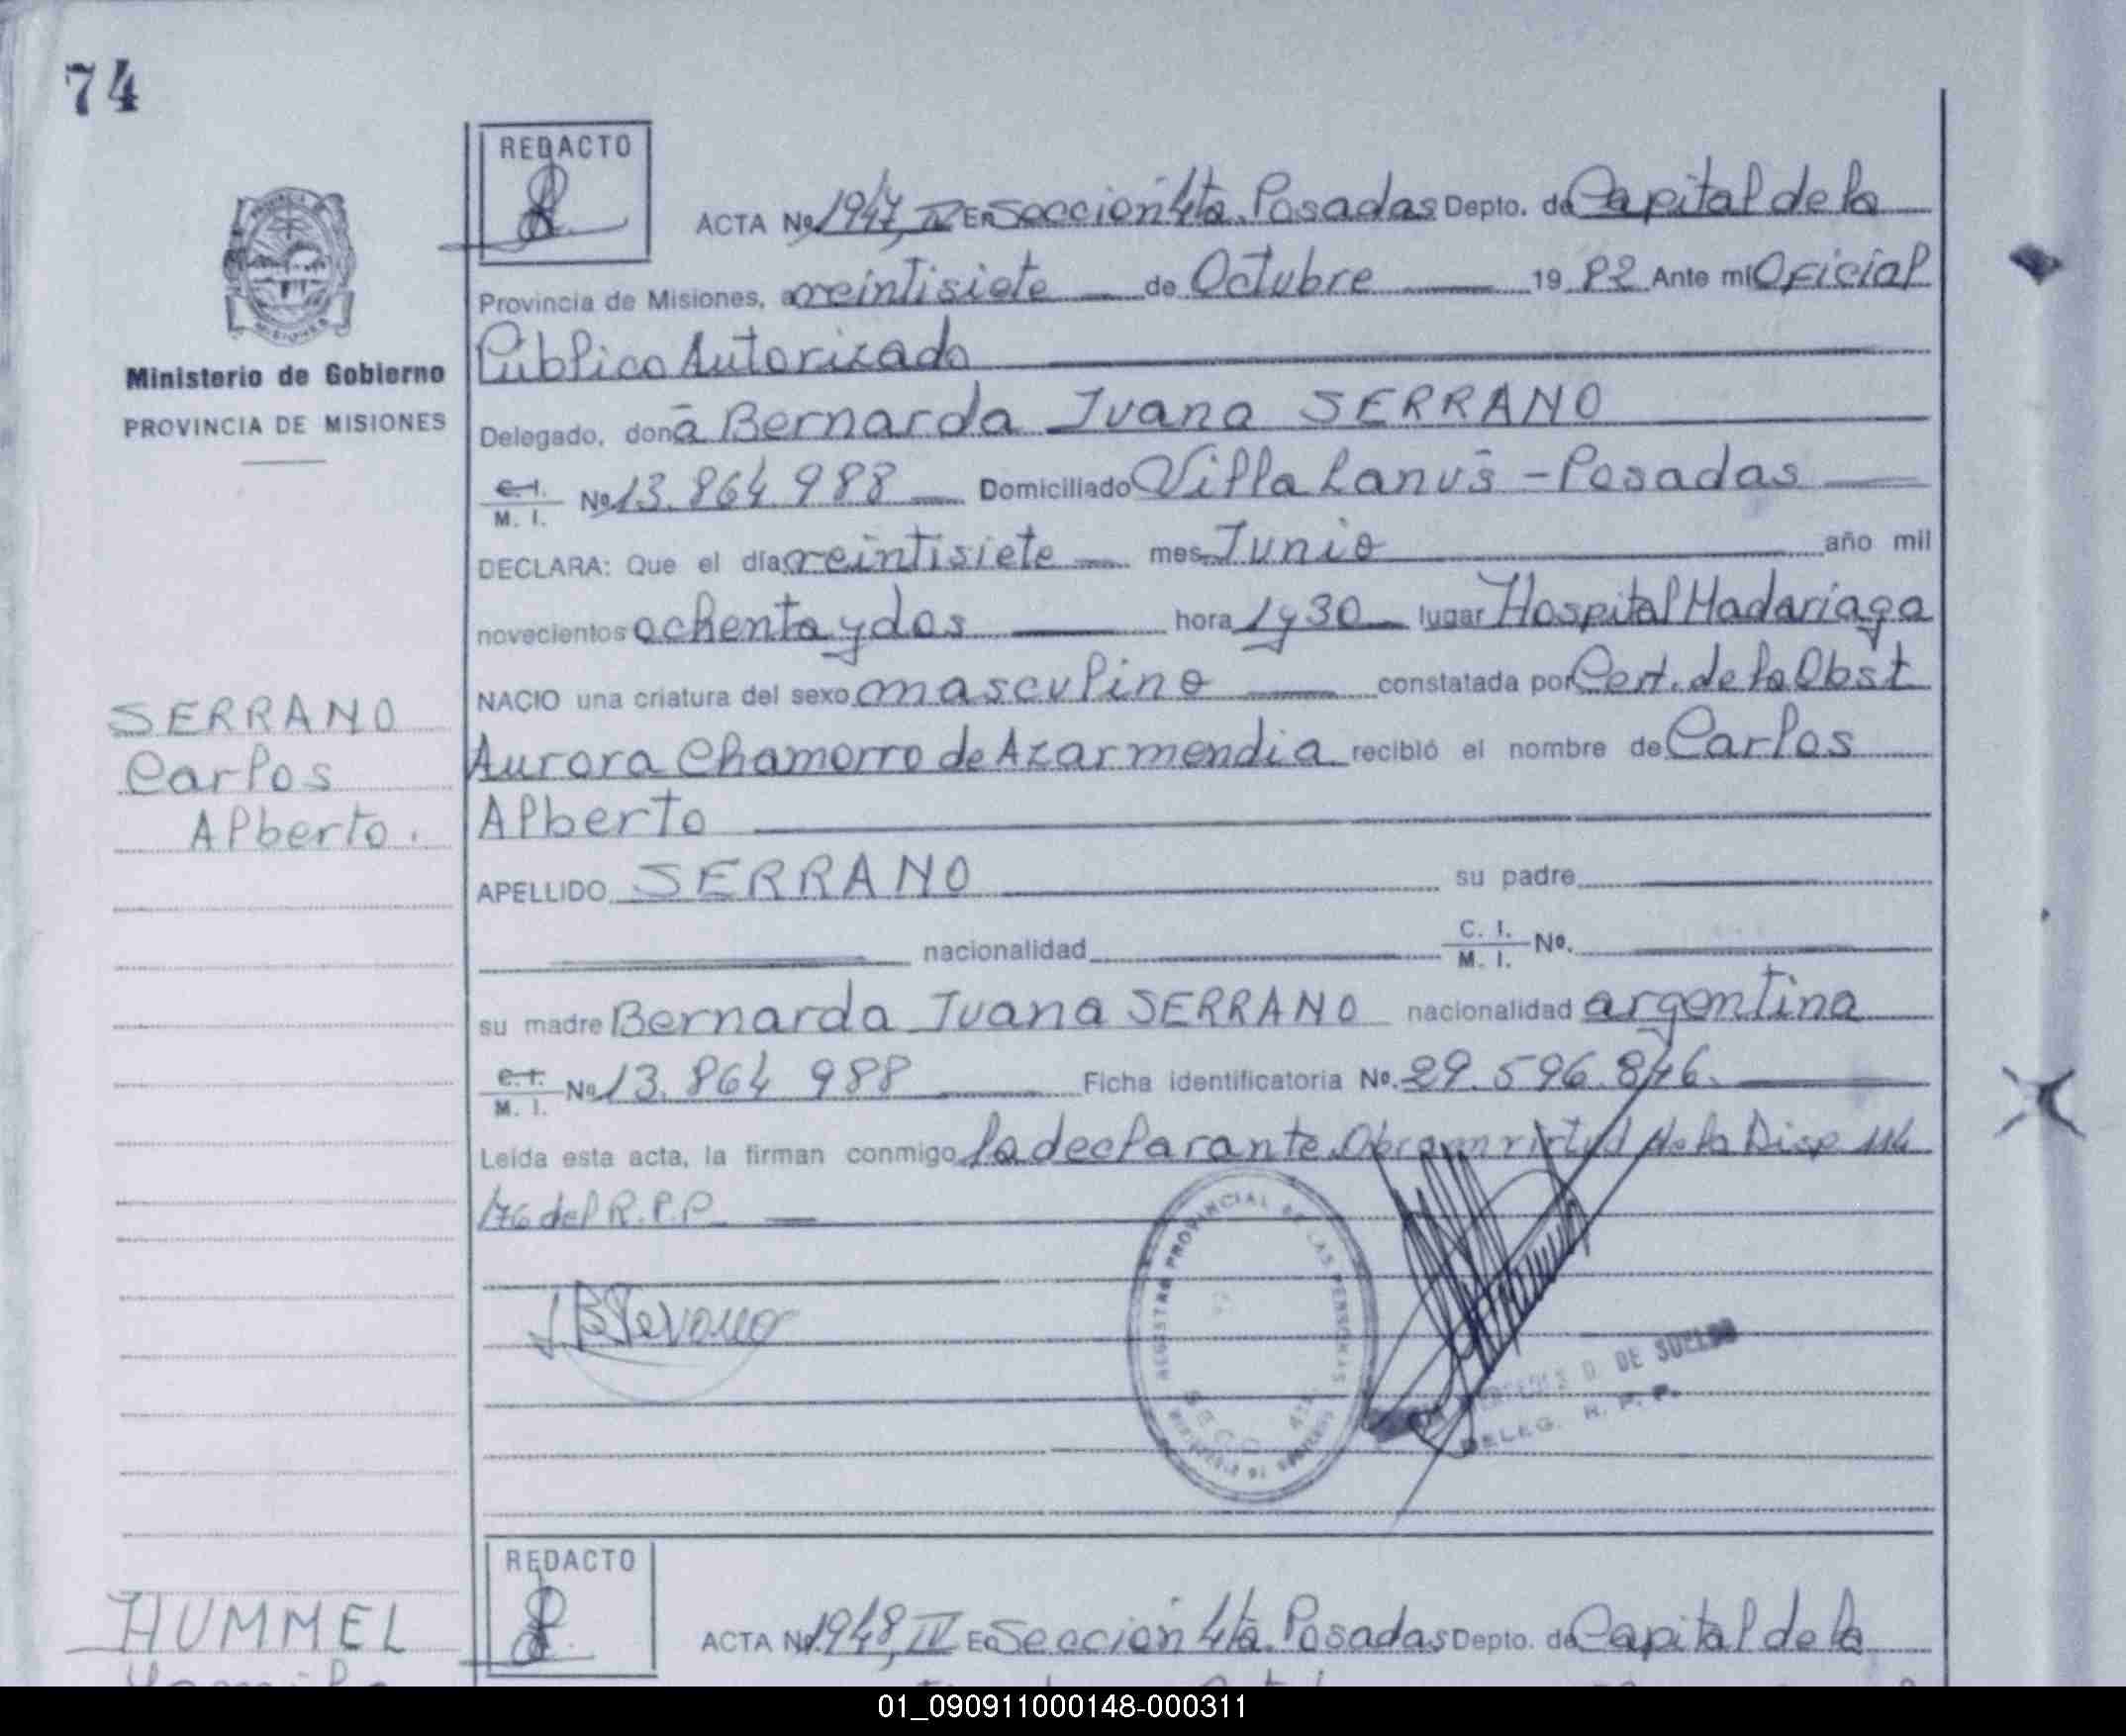 74
REDACTO
ACTA No. 1947, IV En Sección 4ta. Posadas Depto. de Capital de la
Provincia de Misiones, a veintisiete de Octubre 1982 Ante mi Oficial
Ministerio de Gobierno
PROVINCIA DE MISIONES
Público Autorizado
Delegado, doña Bernarda Juana SERRANO
C. I. M. I. No. 13.864.988 Domiciliado Villa Lanús - Posadas
DECLARA: Que el día veintisiete mes Junio año mil
novecientos ochenta y dos hora 1 y 30 lugar Hospital Madariaga
NACIO una criatura del sexo masculino constatada por Cert. de la Obst
SERRANO
Carlos
Alberto.
Aurora Chamorro de Azarmendia recibió el nombre de Carlos
Alberto
APELLIDO SERRANO su padre
nacionalidad C. I. M. I. No.
su madre Bernarda Juana SERRANO nacionalidad argentina
C. I. M. I. No. 13.864.988 Ficha identificatoria No. 29.596.846.
Leída esta acta, la firman conmigo la declarante. Obra en virtud de la Disp. 114
/76 del R.P.P.
REGISTRO PROVINCIAL DE LAS PERSONAS
D. DE SUELDO
DELEG. R. P. P.
REDACTO
HUMMEL
ACTA No. 1948, IV En Sección 4ta. Posadas Depto. de Capital de la
01_090911000148-000311